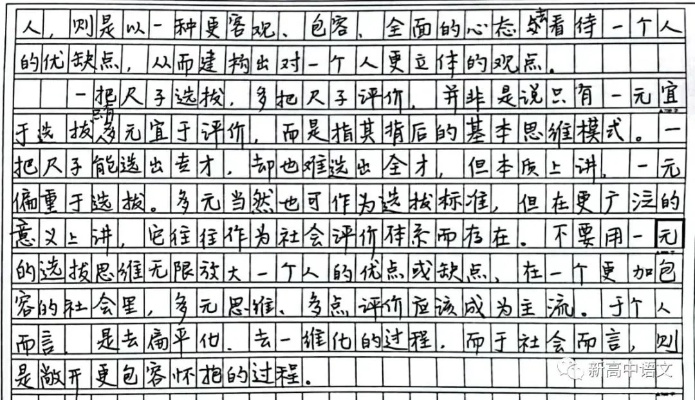 人,则是以一种更客观、包容、全面的心态去看待一个人
的优缺点,从而建构出对一个人更立体的观点。
一把尺子选拔,多把尺子评价,并非是说只有一元宜
于选拔,多元宜于评价,而是指其背后的基本思维模式。一
把尺子能选出专才,却也难选出全才,但本质上讲,一元
偏重于选拔。多元当然也可作为选拔标准,但在更广泛的
意义上讲,它往往作为社会评价体系而存在。不要用一元
的选拔思维无限放大一个人的优点或缺点,在一个更加包
容的社会里,多元思维、多点评价应该成为主流。于个人
而言,是去扁平化、去一维化的过程,而于社会而言,则
是敞开更包容怀抱的过程。
新高中语文